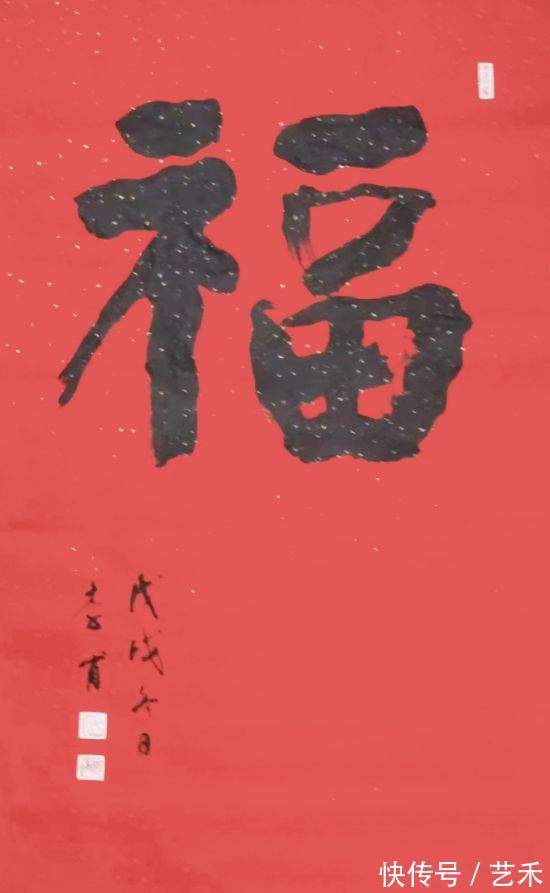 福
戊戌冬日
快传号 / 艺禾